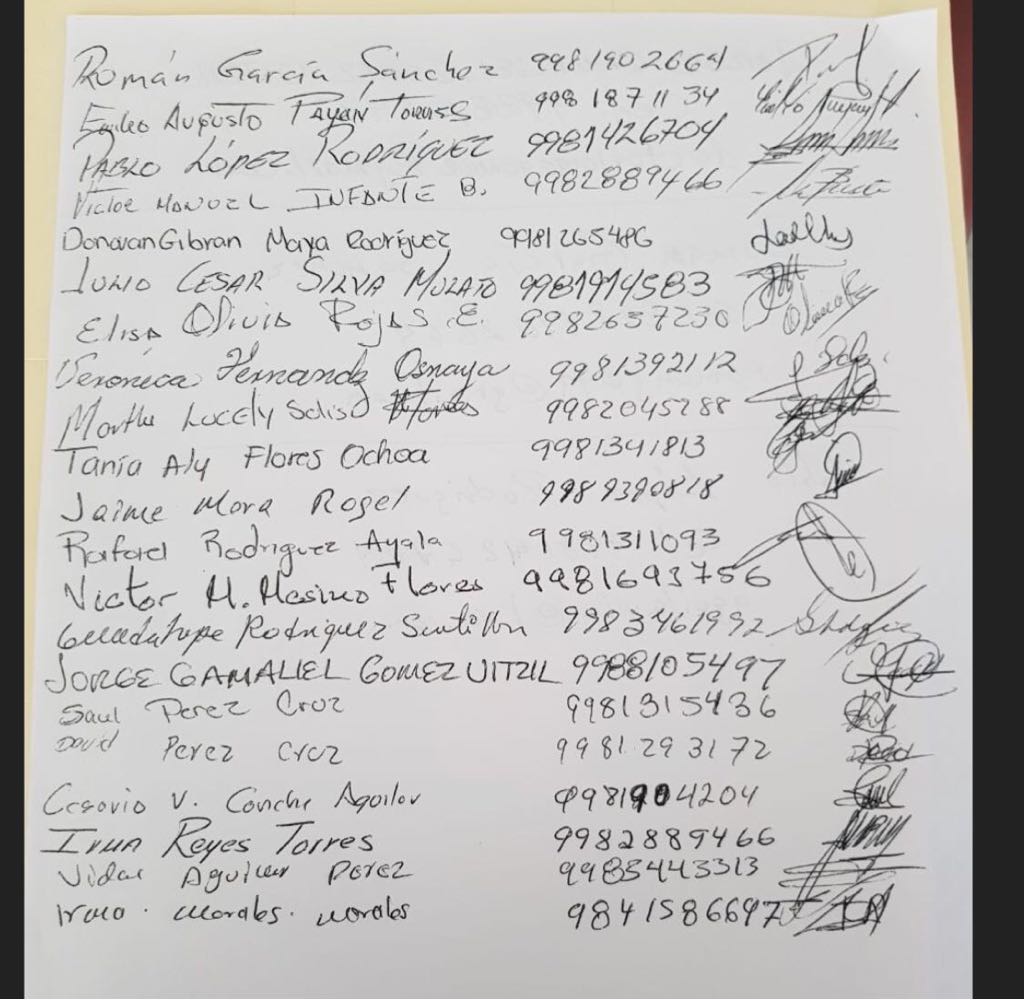 Román García Sánchez 9981902664
Emileo Augusto Payán Torres 998 187 11 34
Pablo López Rodríguez 9981426704
Victor Manuel Infante B. 9982889466
Donovan Gibran Maya Rodríguez 9981265486
Julio Cesar Silva Mulato 9981914583
Elisa Olivia Rojas E. 9982637230
Verónica Hernandz Osnaya 9981392112
Martha Lucely Solis 9982045288
Tania Aly Flores Ochoa 9981341813
Jaime Mora Rogel 9989390818
Rafael Rodriguez Ayala 9981311093
Victor M. Flores 9981693756
Guadalupe Rodriguez 9983461992
JORGE GAMALIEL GOMEZ UITZIL 9988105497
Saul Perez Cruz 9981315436
David Perez Cruz 9981293172
Cesario V. Conche Aguilar 9981904204
Irma Reyes Torres 9982889466
Vidal Aguilar Perez 9983443313
Irma. Morales. Morales